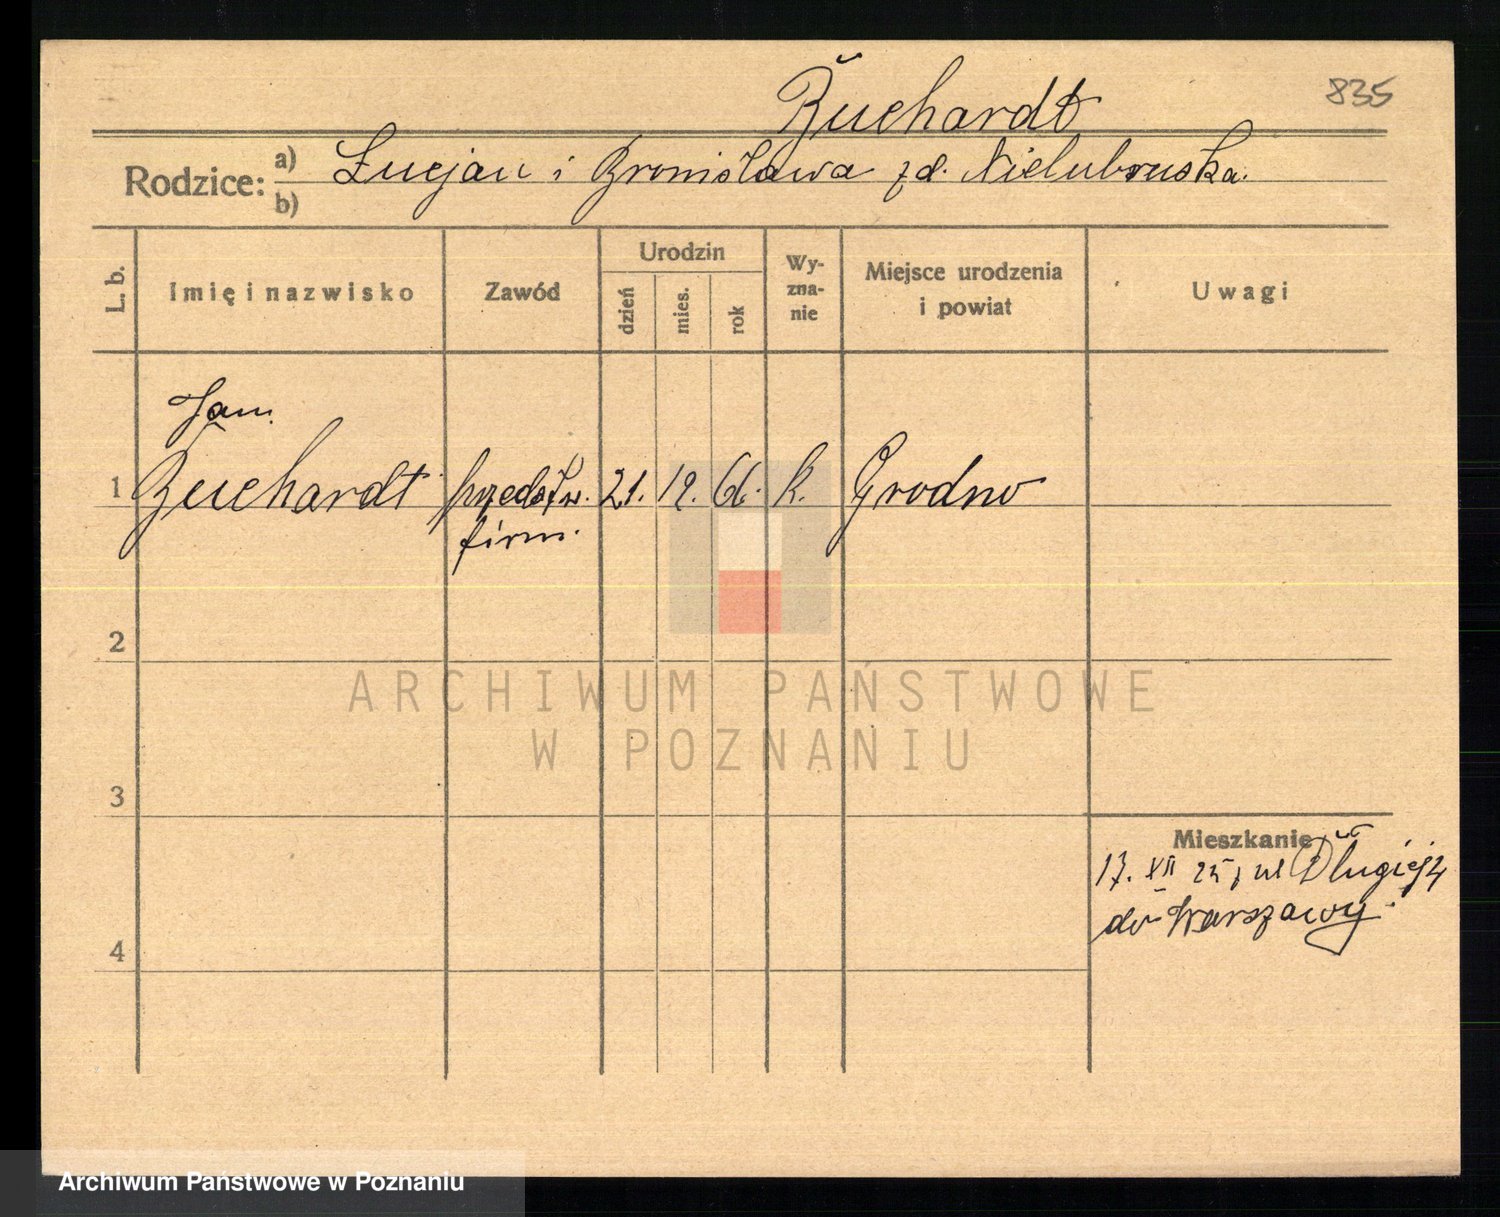 Buchardt 835
Rodzice: a) Łucjan i Bronisława z d. Nielubruska.
b)
L. b. Imię i nazwisko Zawód Urodzin dzień mies. rok Wy-zna-nie Miejsce urodzenia i powiat Uwagi
Jan
1 Buchardt przedstw. 21. 12. 66. k. Grodno
firm.
2
ARCHIWUM PAŃSTWOWE
W POZNANIU
3
Mieszkanie
17. XII 25 z ul Długiej 4
do Warszawy.
4
Archiwum Państwowe w Poznaniu